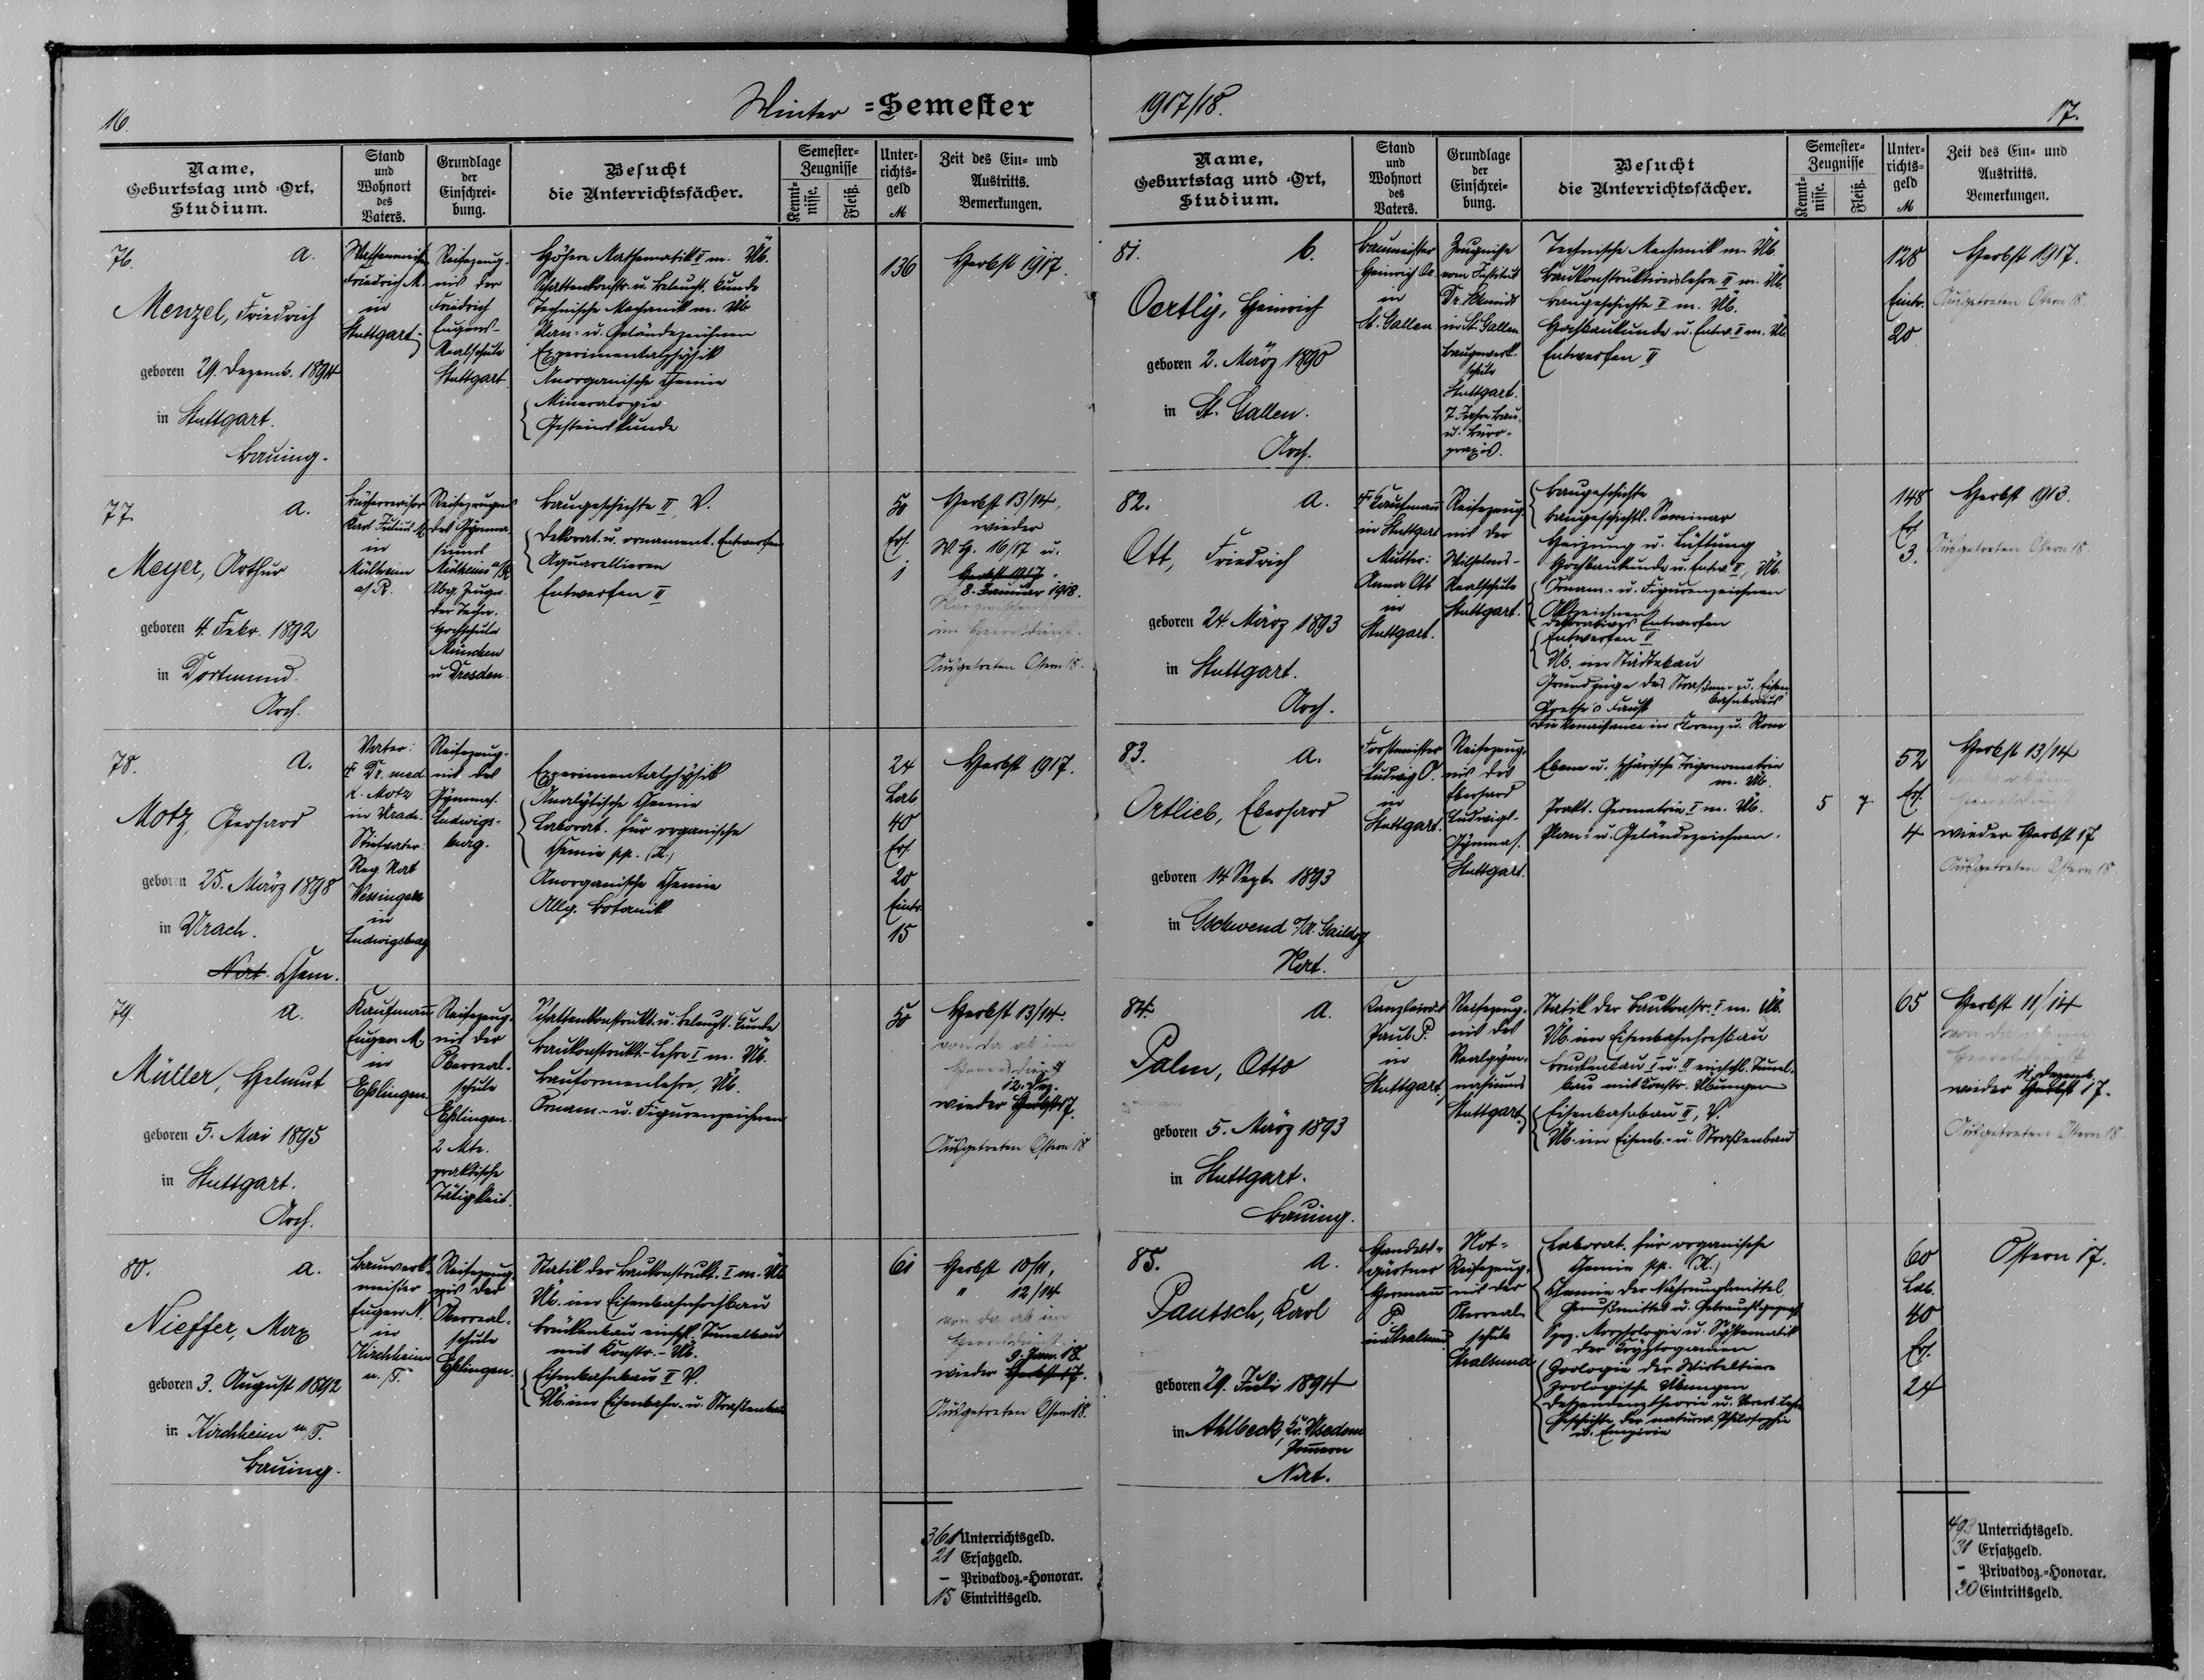 16.
Winter =Semester
Name, Geburtstag und =Ort, Studium.
Stand und Wohnort des Vaters.
Grundlage der Einschrei= bung.
Besucht die Unterrichtsfächer.
Semester= Zeugnisse
Kennt= nisse.
Fleiß.
Unter= richts= geld M
Zeit des Ein= und Austritts. Bemerkungen.
76. a.
Menzel, Friedrich
geboren 29. Dezemb. 1894
in Stuttgart.
Bauing.
Friedrich M.
in
Stuttgart
Reifezeug-
nis der
Friedrich
Eugens-
Realschule
Stuttgart.
Höhere Mathematik II m. Üb.
Schattenkonstr. u. Beleucht. Kunde
Technische Mechanik m. Üb.
Plan- u. Geländezeichnen
Experimentalphysik
Anorganische Chemie
Mineralogie
Gesteinskunde
136
Herbst 1917.
77. a.
Meyer, Arthur
geboren 4. Febr. 1892
in Dortmund.
Arch.
Bücherrevisor
Karl Julius M.
in
Mülheim
a/R.
Reifezeugnis
des Gymna-
siums
Mülheim a/R
Abg. Zeugn.
der Techn.
Hochschule
München
u Dresden.
Baugeschichte II, V.
Dekorat. u. ornament. Entwerfen
Aquarellieren
Entwerfen II
50
Ers.
1
Herbst 13/14,
wieder
W. H. 16/17 u.
Herbst 1917.
8. Januar 1918.
im Heeresdienst.
Ausgetreten Ostern 18.
78. a.
Motz, Gerhard
geboren 25. März 1898
in Urach.
Nat. Chem.
Vater:
† Dr. med
K. Motz
in Urach.
Stiefvater:
Reg Rat
in
Ludwigsburg
Reifezeug-
nis des
Gymnas.
Ludwigs-
burg.
Experimentalphysik
Analytische Chemie
Laborat. für organische
Chemie pp. (K.)
Anorganische Chemie
Allg. Botanik
24
Lab.
40
Ers.
20
Eintr.
15
Herbst 1917.
79. a.
Müller, Helmut
geboren 5. Mai 1895
in Stuttgart.
Arch.
Kaufmann
Eugen M.
in
Eßlingen.
Reifezeug-
nis der
Oberreal-
schule
Eßlingen.
2 Mte.
praktische
Tätigkeit.
Schattenkonstrukt. u. Beleucht. Kunde
Baukonstrukt.-Lehre I m. Üb.
Bauformenlehre, Üb.
Ornam.- u. Figurenzeichnen
50
Herbst 13/14.
von da ab im
Heeresdienst
12. Dez.
wieder Herbst 17.
Ausgetreten Ostern 18
80. a.
Nieffer, Max
geboren 3. August 1892
in Kirchheim u/T.
Bauing.
Bauwerk-
meister
Eugen N.
in
Kirchheim
u./T.
Reifezeug-
nis der
Oberreal-
schule
Eßlingen.
Statik der Baukonstrukt. I m. Üb
Üb. im Eisenbahnhochbau
Brückenbau einschl. Tunnelbau
mit Konstr.-Üb.
Eisenbahnbau II V.
Üb. im Eisenbahn- u. Straßenbau
61
Herbst 10/11,
" 12/14
von da ab im
Heeresdienst
9. Jan. 18.
wieder Herbst 17.
Ausgetreten Ostern 18.
361 Unterrichtsgeld.
21 Ersatzgeld.
– Privatdoz.=Honorar.
15 Eintrittsgeld.
1917/18.
17.
Name, Geburtstag und =Ort, Studium.
Stand und Wohnort des Vaters.
Grundlage der Einschrei= bung.
Besucht die Unterrichtsfächer.
Semester= Zeugnisse
Kennt= nisse.
Fleiß.
Unter= richts= geld M
Zeit des Ein= und Austritts. Bemerkungen.
81. b.
Oertly, Heinrich
geboren 2. März 1890
in St. Gallen.
Arch.
Baumeister
Heinrich O.
in
St. Gallen
Zeugnisse
vom Institut
Dr. Schmidt
in St. Gallen
Baugewerk-
schule
Stuttgart.
7 Jahre Bau-
u. Büro-
praxis.
Technische Mechanik m. Üb.
Baukonstruktionslehre II m. Üb.
Baugeschichte I m. Üb.
Hochbaukunde u. Entw. I m. Üb.
Entwerfen II
128
Eintr.
20
Herbst 1917.
Ausgetreten Ostern 18
82. a.
Ott, Friedrich
geboren 24 März 1893
in Stuttgart.
Arch.
† Kaufmann
in Stuttgart
Mutter:
Anna Ott
in
Stuttgart.
Reifezeug-
nis der
Wilhelms-
Realschule
Stuttgart.
Baugeschichte
Baugeschichtl. Seminar
Heizung u. Lüftung
Hochbaukunde u. Entw. II, Üb.
Ornam.- u. Figurenzeichnen
Aktzeichnen
Dekoratives Entwerfen
Entwerfen II
Üb. im Städtebau
Grundzüge des Straßen- u. Eisen-
bahnbaus
Goethe's Faust
Die Renaissance in Florenz u. Rom
148
Ers
3.
Herbst 1913.
Ausgetreten Ostern 18.
83. a.
Ortlieb, Eberhard
geboren 14 Sept. 1893
in Gschwend O/A. Gaildorf
Nat.
Forstmeister
Ludwig O.
in
Stuttgart.
Reifezeug-
nis des
Eberhard
Ludwigs-
Gymnas.
Stuttgart.
Ebene u. sphärische Trigonometrie
m. Üb.
Prakt. Geometrie I m. Üb.
Plan- u. Geländezeichnen.
5 7
52
Ers.
4
Herbst 13/14
wieder Herbst 17
Ausgetreten Ostern 18
84. a.
Palm, Otto
geboren 5. März 1893
in Stuttgart.
Bauing.
Kanzleirat
Paul P.
in
Stuttgart
Reifezeug-
nis des
Realgym-
nasiums
Stuttgart.
Statik der Baukonstr. I m. Üb.
Üb. im Eisenbahnhochbau
Brückenbau I u. II einschl. Tunnel-
bau mit Konstr. Übungen
Eisenbahnbau II, V.
Üb. im Eisenb.- u. Straßenbau
65
Herbst 11/14
von da ab im
Heeresdienst
11. Dezemb.
wieder Herbst 17.
Ausgetreten Ostern 18
85. a.
Pautsch, Karl
geboren 29. Juli 1894
in Ahlbeck, Kr. Usedom
Pommern
Nat.
Handels-
gärtner
Hermann
P.
in Stralsund
Not-
Reifezeug-
nis der
Oberreal-
schule
Stralsund
Laborat. für organische
Chemie pp. (K.)
Chemie der Nahrungsmittel,
Genußmittel u. Gebrauchsgegenst.
Spez. Morphologie u. Systematik
der Kryptogamen
Zoologie der Wirbeltiere
Zoologische Übungen
Deszendenztheorie u. Vererb. Lehre
Geschichte der naturw. Philosophie
u. Empirie
60
Lab.
40
Ers.
24
Ostern 17.
493 Unterrichtsgeld.
31 Ersatzgeld.
– Privatdoz.=Honorar.
20 Eintrittsgeld.